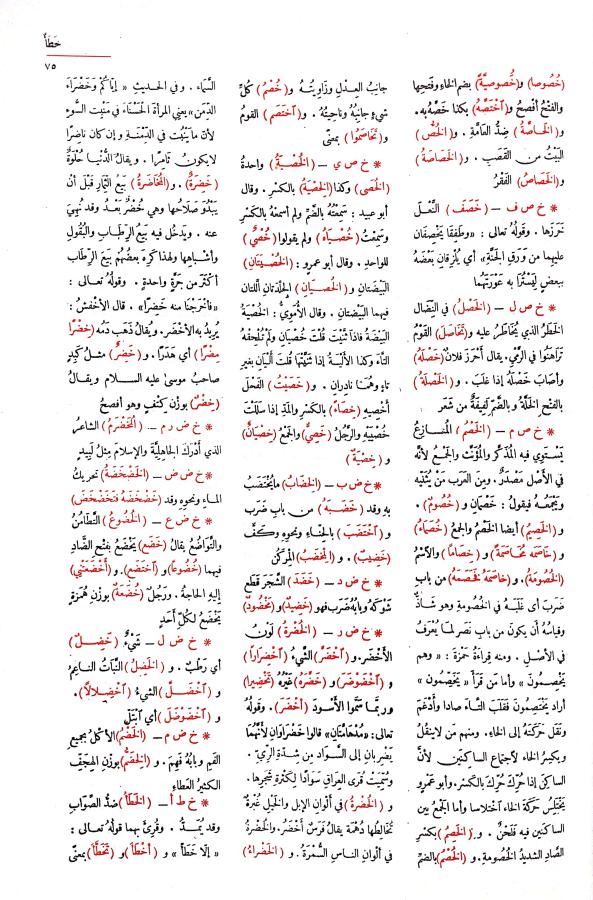 خَطَأ
٧٥
(خُصُوصا) و(خُصُوصِيَّةً) بضم الخاء وفتحها
والفتْحُ أفصحُ و(ٱخْتَصَّهُ) بكذا خَصَّهُ به .
و(الخَاصَّةُ) ضِدُّ العَامَّةِ . و(الخُصُّ)
البَيْتُ من القَصَب . و(الخَصَاصَةُ)
و(الخَصَاصُ) الفَقْرُ
* خ ص ف – (خَصَفَ) النَّعْلَ
خَرَزَها . وقَولُهُ تعالى : «وطَفِقَا يَخْصِفَانِ
عليهما من وَرَقِ الجَنَّةِ» أي يُلْزِقَانِ بَعْضَهُ
ببعضٍ لِيَسْتُرَا به عَوْرَتَهُما
* خ ص ل – (الخَصْلُ) في النِّضَال
الخَطَرُ الذي يُخَاطَرُ عليه و(تَخَاصَلَ) القَوْمُ
تَرَاهَنُوا في الرَّمْيِ . يقال أَحْرَزَ فلانٌ (خَصْلَهُ)
وأصَابَ خَصْلَهُ إذا غَلَبَ . و(الخَصْلَةُ)
بالفتح الخَلَّةُ وبالضَّمِّ لَفِيفَةٌ من شَعَر
* خ ص م – (الخَصْمُ) المُنَازِعُ
يَسْتَوِي فيه المُذَكَّرُ والمُؤَنَّثُ والجَمْعُ لأنه
في الأصْلِ مَصْدَرٌ . ومِنَ العَرَبِ مَنْ يُثَنِّيه
ويَجْمَعُه فيقولُ : خَصْمَانِ و (خُصُومٌ) .
و(الخَصِيمُ) أيضا الخَصْمُ والجمعُ (خُصَمَاءُ)
و(خَاصَمَهُ مُخَاصَمَةً) و(خِصَاماً) والاسْمُ
(الخُصُومَةُ) . و(خَاصَمَهُ فَخَصَمَهُ) من بابِ
ضَرَبَ أي غَلَبَهُ في الخُصُومةِ وهو شَاذٌّ
وقِيَاسُهُ أن يكونَ من بابِ نَصَرَ لما يُعْرَفُ
في الأصْلِ . ومنه قِرَاءةُ حَمْزَةَ : « وهم
يَخْصِمُونَ » وأما مَن قَرَأ « يَخَصِّمُون »
أرادَ يَخْتَصِمُونَ فقَلَبَ التَّاءَ صادا وأدْغَمَ
ونَقَل حَرَكَتَهُ إلى الخاء . ومنهم مَن لا يَنْقُلُ
ويَكْسِرُ الخاءَ لاجتماعِ الساكِنَيْنِ لأنَّ
الساكِنَ إذا حُرِّكَ حُرِّكَ بالكَسْرِ . وأبو عَمْرو
يَخْتَلِسُ حَرَكَةَ الخاءِ اختلاسا وأما الجَمْعُ بين
الساكنين فيه فلَحْنٌ . و(الخَصِمُ) بكسْرِ
الصَّادِ الشديدُ الخُصُومةِ . و(الخُصْمُ) بالضمِّ
جانِبُ العِدْلِ وزَاوِيَتُهُ و(خُصْمُ) كُلِّ
شيءٍ جَانِبُهُ وناحِيَتُهُ . و(ٱخْتَصَمَ) القومُ
و(تَخَاصَمُوا) بمعنًى
* خ ص ي – (الخُصْيَةُ) واحدةُ
(الخُصَى) وكذا (الخِصْيَةُ) بالكسْرِ . وقال
أبو عبيد : سَمِعْتُهُ بالضَّمِّ ولم أسمعْهُ بالكَسْرِ
وسَمِعْتُ (خُصْيَاهُ) ولم يقولوا (خُصْيٌ)
للواحدِ . وقال أبو عمرو : (الخُصْيَتَانِ)
البَيْضَتانِ و(الخُصْيَانِ) الجِلْدَتَانِ اللَّتانِ
فيهما البَيْضَتَانِ . وقال الأُمَوِيُّ : الخُصْيَةُ
البَيْضَةُ فإذا ثَنَّيْتَ قُلْتَ خُصْيَانِ ولم تُلْحِقْهُ
التَّاءَ وكذا الأَلْيَةُ إذا ثَنَّيْتَها قُلْتَ أَلْيَانِ بغيرِ
تاءٍ وهُما نَادِرَانِ . و(خَصَيْتُ) الفَحْلَ
أَخْصِيهِ (خِصَاءً) بالكَسْرِ والمَدِّ إذا سَلَلْتَ
خُصْيَيْهِ والرَّجُلُ (خَصِيٌّ) والجَمْعُ (خِصْيَانٌ)
و(خِصْيَةٌ)
* خ ض ب – (الخِضَابُ) ما يُخْتَضَبُ
بهِ وقد (خَضَبَهُ) من بابِ ضَرَبَ
و(ٱخْتَضَبَ) بالحِنَّاءِ ونحوِهِ وكَفٌّ
(خَضِيبٌ) . و(المِخْضَبُ) المِرْكَنُ
* خ ض د – (خَضَدَ) الشَّجَرَ قَطَعَ
شَوْكَهُ وبابُهُ ضَرَبَ فهو (خَضِيدٌ) و(مَخْضُودٌ)
* خ ض ر – (الخُضْرَةُ) لَوْنُ
الأَخْضَرِ . و(ٱخْضَرَّ) الشَّيْءُ (ٱخْضِرَاراً)
و(ٱخْضَوْضَرَ) و(خَضَّرَهُ) غَيْرُهُ (تَخْضِيرا)
وربَّما سَمَّوُا الأَسْوَدَ (أَخْضَرَ) . وقَولُهُ
تعالى : «مُدْهَامَّتَانِ» قالوا خَضْرَاوَانِ لأنَّهما
يَضْرِبانِ إلى السَّوَادِ من شِدَّةِ الرِّيِّ .
وسُمِّيَتْ قُرَى العِرَاقِ سَوَادًا لِكَثْرَةِ شَجَرِها .
و(الخُضْرَةُ) في ألوانِ الإبلِ والخَيلِ غُبْرَةٌ
تُخَالِطُها دُهْمَةٌ يقال فَرَسٌ أَخْضَرُ . والخُضْرةُ
في ألوانِ الناسِ السُّمْرَةُ . و(الخَضْرَاءُ)
السَّمَاءُ . وفي الحديثِ « إيَّاكُمْ وخَضْرَاءَ
الدِّمَنِ » يعني المرأةَ الحَسْنَاءَ في مَنْبِتِ السُّوءِ
لأن ما يَنْبُتُ في الدِّمْنَةِ وإن كان ناضرًا
لا يكونُ ثَامِرًا . ويقالُ الدُّنْيَا حُلْوَةٌ
(خَضِرَةٌ) . و(المُخَاضَرَةُ) بَيْعُ الثِّمَارِ قَبْلَ أنْ
يَبْدُوَ صَلَاحُها وهي خُضْرٌ بَعْدُ وقد نُهِيَ
عنه . ويَدْخُلُ فيه بَيْعُ الرِّطَابِ والبُقُولِ
وأشباهِها ولهذا كَرِهَ بعضُهم بَيْعَ الرِّطَابِ
أكثَرَ من جَزَّةٍ واحدةٍ . وقولُهُ تعالى :
«فأخْرَجْنَا منه خَضِرًا» . قال الأخْفَشُ :
يُرِيدُ به الأخْضَرَ . ويُقالُ ذَهَبَ دَمُهُ (خِضْرًا
مِضْرًا) أي هَدَرًا . و(خَضِرٌ) مثلُ كَبِدٍ
صاحبُ موسى عليه السلام ويقالُ
(خِضْرٌ) بوزْنِ كِتْفٍ وهو أفصحُ
* خ ض ر م – (المُخَضْرَمُ) الشاعرُ
الذي أدْرَكَ الجاهِليَّةَ والإسلامَ مِثْلُ لَبِيدٍ
* خ ض ض – (الخَضْخَضَةُ) تحريكُ
الماءِ ونحوِهِ وقد (خَضْخَضَهُ فتَخَضْخَضَ)
* خ ض ع – (الخُضُوعُ) التَّطَامُنُ
والتَّوَاضُعُ يقالُ (خَضَعَ) يَخْضَعُ بفتحِ الضَّادِ
فيهما (خُضُوعًا) و(ٱخْتَضَعَ) . و(أَخْضَعَتْنِي)
إليه الحاجةُ . ورَجُلٌ (خُضَعَةٌ) بوزْنِ هُمَزَةٍ
يَخْضَعُ لكُلِّ أَحَدٍ
* خ ض ل – شَيْءٌ (خَضِلٌ)
أي رَطْبٌ . و(الخَضِلُ) النَّبَاتُ النَّاعِمُ
و(ٱخْضَلَّ) الشيءُ (ٱخْضِلَالًا) .
و(ٱخْضَوْضَلَ) أي ٱبْتَلَّ
* خ ض م – (الخَضْمُ) الأكلُ بجميعِ
الفَمِ وبابُهُ فَهِمَ . و(الخِضَمُّ) بوزْنِ الهِجَفِّ
الكثيرُ العَطَاءِ
* خ ط أ – (الخَطَأُ) ضِدُّ الصَّوَابِ
وقد يُمَدُّ . وقُرِئَ بهما قولُهُ تعالى :
« إلا خَطَأً » و(أَخْطَأَ) و(تَخَطَّأَ) بمعنًى